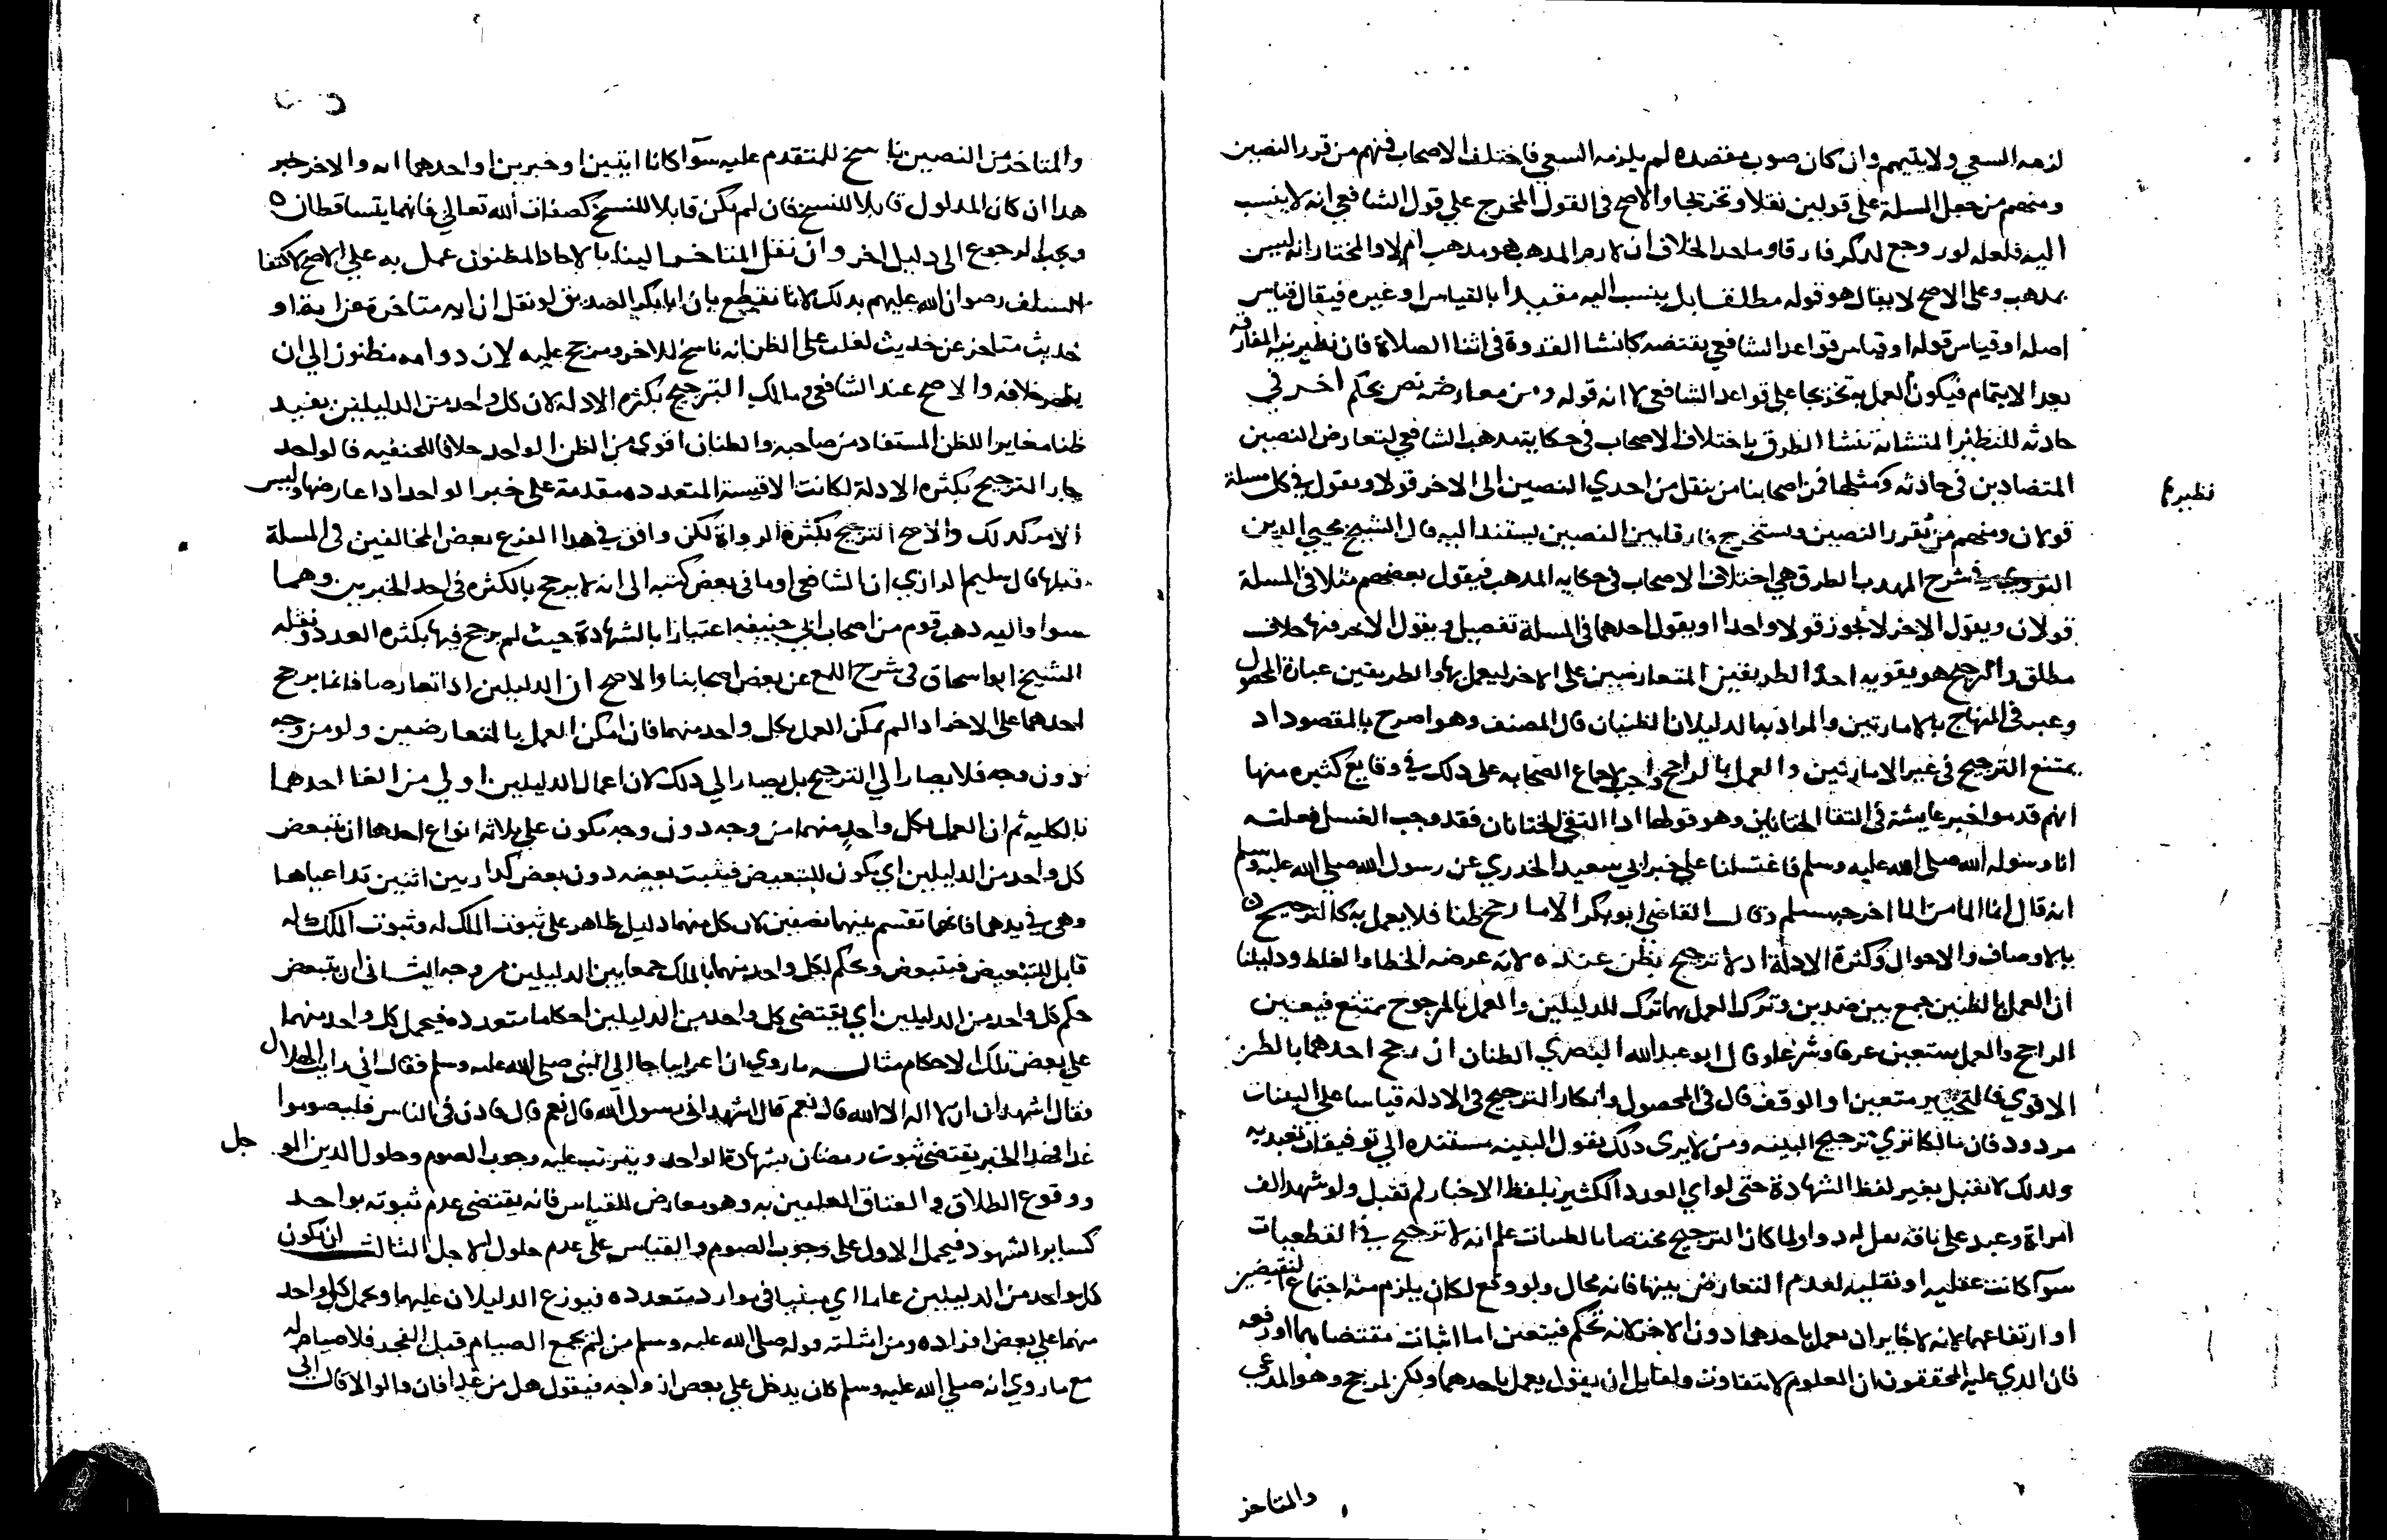 لزمه السعي ولا يتيمم وان كان صوب مقصده لم يلزمه السعي فاختلف الاصحاب فمنهم من قرر النصين
ومنهم من جعل المسلة على قولين نقلا وتخريجا والاصح في القول المخرج علي قول الشافعي انه لا ينسب
اليه فلعله لو روجع لذكر فارقا وماخد الخلاف ان لازم المدهب هو مدهب ام لا والمختار انه ليس
بمدهب وعلى الاصح لا يقال هو قوله مطلقا بل ينسب اليه مقيدا بالقياس او غيره فيقال قياس
اصله او قياس قوله او قياس قواعد الشافعي يقتضه كانشا القدوة في اثنا الصلاة فان نظير نية المفارقه
بعد الايتمام فيكون العمل به تخريجا على قواعد الشافعي لا انه قوله ومن معارضة نص بحكم اخر في
حادثه للنظير المتشابه تنشا الطرق باختلاف الاصحاب في حكاية مدهب الشافعي لتعارض النصين
المتضادين في حادثه ومثلها فمن اصحابنا من ينقل من احدي النصين الى الاخر قولا ويقول في كل مسلة
نظيرة
قولان ومنهم من يقرر النصين ويستخرج فارقا بين النصين يستند اليه قال الشيخ محيي الدين
النووي في شرح المهدب الطرق هي اختلاف الاصحاب في حكايه المدهب فيقول بعضهم مثلا في المسلة
قولان ويقول الاخر لا يجوز قولا واحدا او يقول احدهما في المسلة تفصيل ويقول الاخر فيها خلاف
مطلق والترجيح هو تقويه احد الطريقين المتعارضين على الاخر ليعمل بها والطريقين عبارة المحصول
وعبر في المنهاج بالامارتين والمراد بهما الدليلان الظنيان قال المصنف وهو اصرح بالمقصود اد
يمتنع الترجيح في غير الامارتين والعمل بالراجح واجب لاجماع الصحابه على دلك في وقايع كثيره منها
انهم قدموا خبر عايشة في التقا الختانين وهو قولها ادا التقى الختانان فقد وجب الغسل فعلته
انا ورسوله الله صلى الله عليه وسلم فاغتسلنا علي خبر ابي سعيد الخدري عن رسول الله صلى الله عليه وسلم
انه قال انما الما من الما اخرجه مسلم وقال القاضي ابو بكر الا ما رجح ظنا فلا يعمل به كالترجيح
بالاوصاف والاحوال وكثرة الادلة اد لا ترجيح بظن عنده لانه عرضه الخطا والغلط ودليلنا
ان العمل بالظنين جمع بين ضدين وترك العمل بهما ترك للدليلين والعمل بالمرجوح ممتنع فيعين
الراجح والعمل به متعين عرفا وشرعا وقال ابو عبد الله البصري الظنان ان رجح احدهما بالظن
الاقوي فالتخيير متعين او الوقف قال في المحصول وانكار الترجيح في الادلة قياسا علي البينات
مردود فان مالكا نري ترجيح البينه ومن لا يرى دلك يقول البينه مستنده الي توقيفات تعبديه
ولدلك لا تقبل بغير لفظ الشهادة حتى لو اي العدد الكثير بلفظ الاخبار لم تقبل ولو شهد الف
امراة وعبد على باقه بقل لم ولما كان الترجيح مختصا بالظنيات علم انه لا ترجيح في القطعيات
سوا كانت عقليه او نقليه لعدم التعارض بينها فانه محال ولو وقع لكان يلزم منه اجتماع النقيضين
او ارتفاعهما لانه لا جاير ان يعمل باحدهما دون الاخر لانه تحكم فيتعين اما اثبات مقتضاهما او رفعه
فان الدي عليه المحققون ان العلوم لا تتفاوت ولقايل ان يقول يعمل باحدهما ولكن لمرجح وهو المدعى
والمتاخر
والمتاخر من النصين ناسخ للمتقدم عليه سوا كانا ايتين او خبرين او احدهما ايه والاخر خبر
هدا ان كان المدلول قابلا للنسخ فان لم يكن قابلا للنسخ كصفات الله تعالى فانهما يتساقطان
ويجب الرجوع الى دليل اخر وان نقل المتاخر الينا بالاحاد المظنون عمل به علي الاصح لاكتفا
السلف رضوان الله عليهم بدلك لانا نقطع بان ابا بكر الصديق لو نقل ان ايه متاخرة عن اية او
حديث متاخر عن حديث لغلب على الظن انه ناسخ للاخر ومرجح عليه لان دوامه مظنون الي ان
يظهر خلافه والاصح عند الشافعي ومالك الترجيح بكثره الادلة لان كل واحد من الدليلين يفيد
ظنا مغايرا للظن المستفاد من صاحبه والظنان اقوي من الظن الواحد خلافا للحنفيه قالوا لو
جاز الترجيح بكثره الادلة لكانت الاقيسة المتعدده مقدمة على خبر الواحد ادا عارضها وليس
الامر كدلك والاصح الترجيح بكثرة الرواة لكن وافق في هدا الفرع بعض المخالفين في المسلة
قبلها قال سليم الرازي ان الشافعي اوما في بعض كتبه الى انه لا يرجح بالكثره في احد الخبرين وهما
سوا واليه دهب قوم من اصحاب ابي حنيفه اعتبارا بالشهادة حيث لم يرجح فيها بكثره العدد ونقله
الشيخ ابو اسحاق في شرح اللمع عن بعض اصحابنا والاصح ان الدليلين ادا تعارضا فانما يرجح
احدهما على الاخر ادا لم يمكن العمل بكل واحد منهما فان امكن العمل بالمتعارضين ولو من وجه
دون وجه فلا يصار الي الترجيح بل يصار الي دلك لان اعمال الدليلين اولي من الغا احدهما
بالكليه ثم ان العمل بكل واحد منهما من وجه دون وجه يكون علي ثلاثه انواع احدها ان يتبعض
كل واحد من الدليلين اي يكون للتبعيض فيثبت بعضه دون بعض كدار بين اثنين تداعياها
وهي في يدهما فانها تقسم بينهما نصفين لان كل منهما دليل ظاهر على ثبوت الملك له وثبوت الملك له
قابل للتبعيض فيتبعض ويحكم لكل واحد منهما بالملك جمعا بين الدليلين من وجه الثاني ان يتبعض
حكم كل واحد من الدليلين اي يقتضي كل واحد من الدليلين احكاما متعدده فيحمل كل واحد منهما
علي بعض تلك الاحكام مثاله ما روي ان اعرابيا جا الى النبي صلى الله عليه وسلم فقال اني رايت الهلال
فقال اتشهد ان لا اله الا الله قال نعم قال اتشهد اني رسول الله قال نعم قال فادن في الناس فليصوموا
غدا فهدا الخبر يقتضي ثبوت رمضان بشهادة الواحد ويترتب عليه وجوب الصوم وحلول الدين الموجل
ووقوع الطلاق والعتاق المعلقين به وهو معارض للقياس فانه يقتضي عدم ثبوته بواحد
كساير الشهود فيحمل الاول على وجوب الصوم والقياس على عدم حلول الاجل الثالث ان يكون
كل واحد من الدليلين عاما اي مبنيا في موارد متعدده فيوزع الدليلان عليهما ويحمل كل واحد
منهما علي بعض افراده ومن امثلته قوله صلى الله عليه وسلم من لم يجمع الصيام قبل الفجر فلا صيام له
مع ما روي انه صلي الله عليه وسلم كان يدخل علي بعض ازواجه فيقول هل من غدا فان قالوا لا قال اني